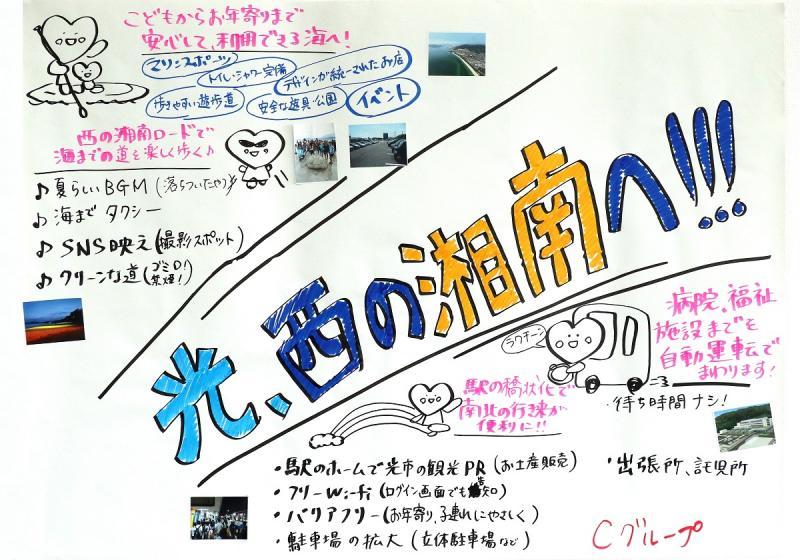 こどもからお年寄りまで
安心して、利用できる海へ!
マリンスポーツ
トイレ・シャワー完備
デザインが統一されたお店
歩きやすい遊歩道
安全な遊具・公園
イベント
西の湘南ロードで
海までの道を楽しく歩く♪
♪夏らしいBGM(落ちついたやつ)
♪海までタクシー
♪SNS映え(撮影スポット)
♪クリーンな道(ゴミ0!
禁煙!)
光、西の湘南へ!!!
病院、福祉
施設までを
自動運転で
まわります!
ラクチーン
・待ち時間ナシ!
・出張所、託児所
駅の橋状化で
南北の行き来が
便利に!!
・駅のホームで光市の観光PR(お土産販売)
・フリーWi-fi(ログイン画面でも告知)
・バリアフリー(お年寄り、子連れにやさしく)
・駐車場の拡大(立体駐車場など)
Cグループ